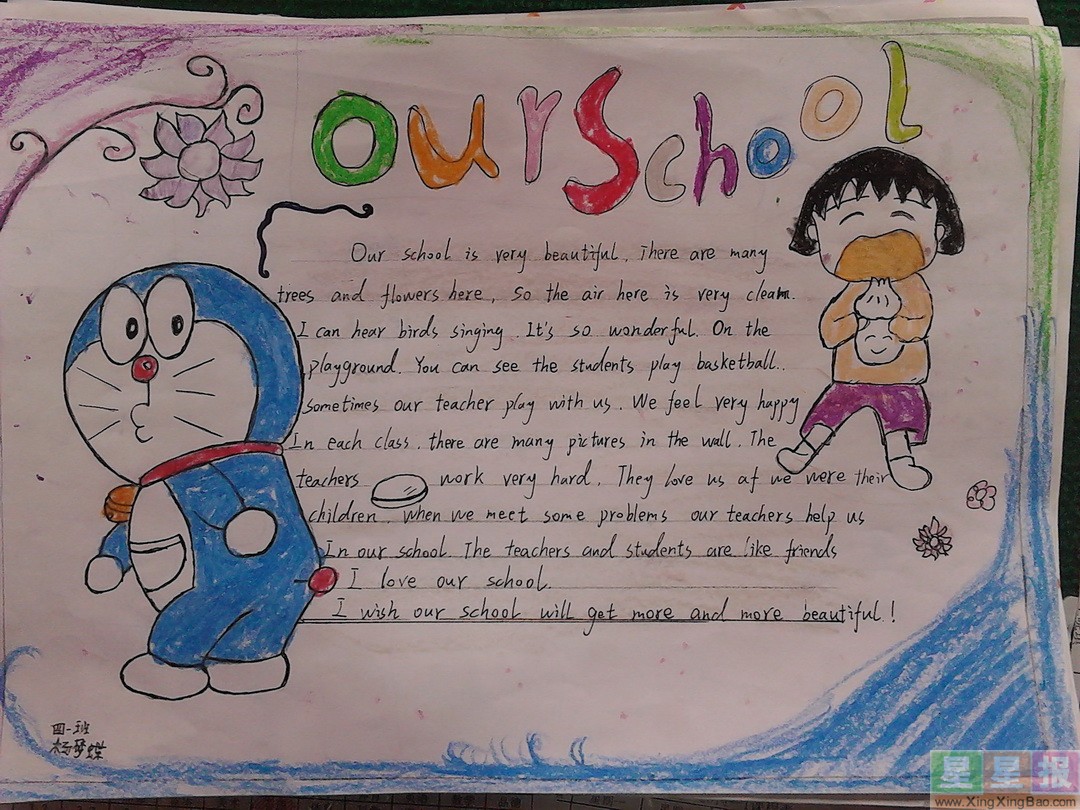 our School
Our school is very beautiful. There are many
trees and flowers here, So the air here is very clean.
I can hear birds singing. It's so wonderful. On the
playground. You can see the students play basketball..
sometimes our teacher play with us. We feel very happy
In each class. there are many pictures in the wall. The
teachers work very hard. They love us af we were their
children. when we meet some problems our teachers help us
In our school. The teachers and students are like friends
I love our school.
I wish our school will get more and more beautiful!
四一班
杨梦蝶
星星报
www.XingXingBao.com